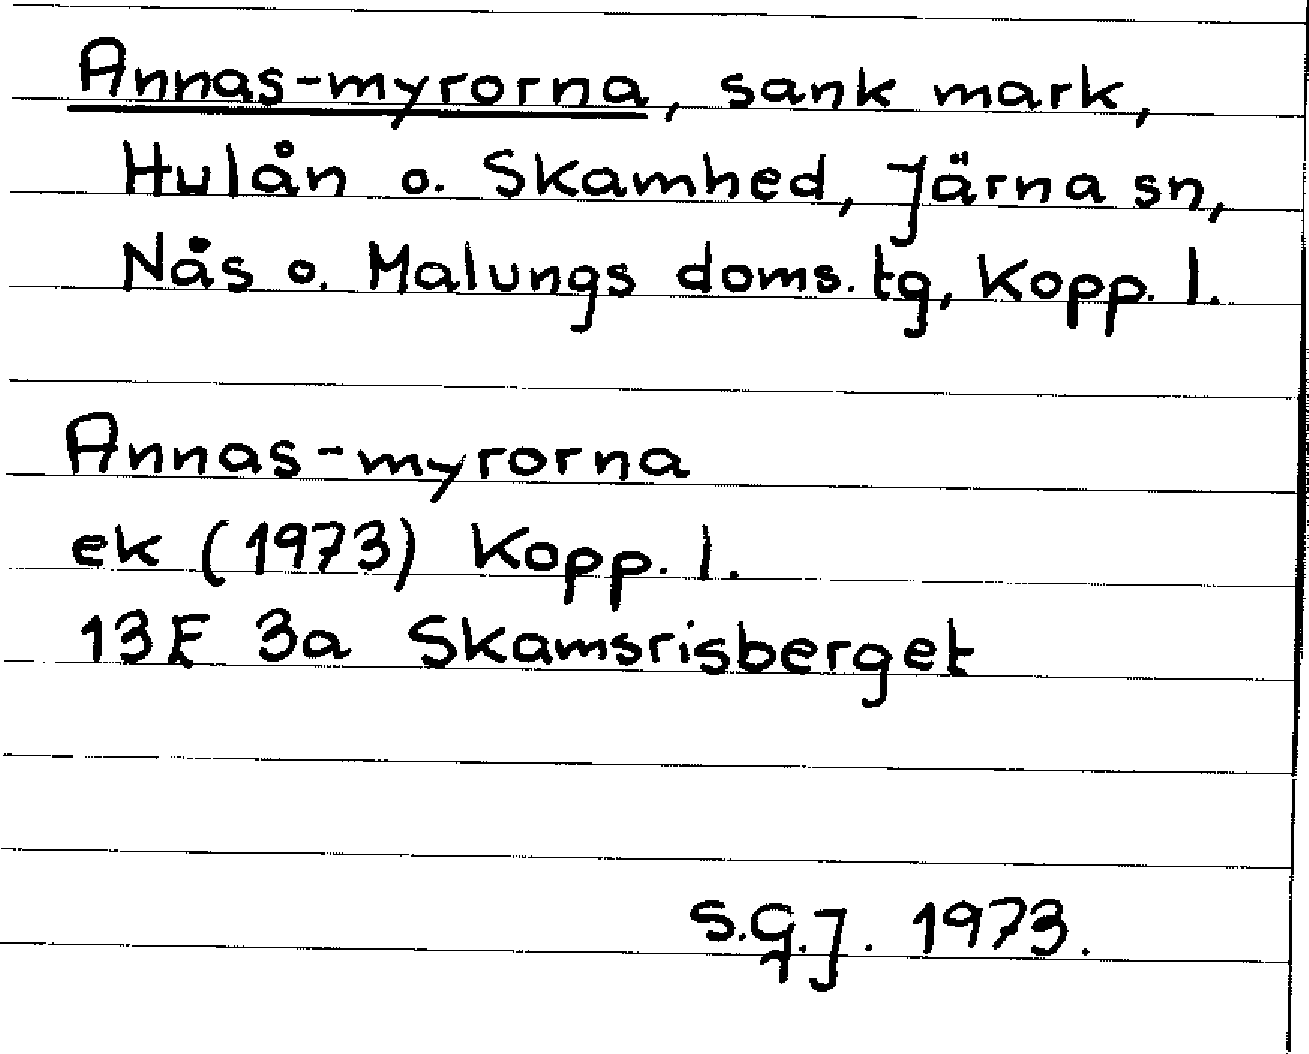 Annas-myrorna, sank mark,
Hulån o. Skamhed, Järna sn,
Nås o. Malungs doms. tg, Kopp. l.
Annas-myrorna
ek (1973) Kopp. l.
13E 3a Skamsrisberget
S.G.J. 1973.